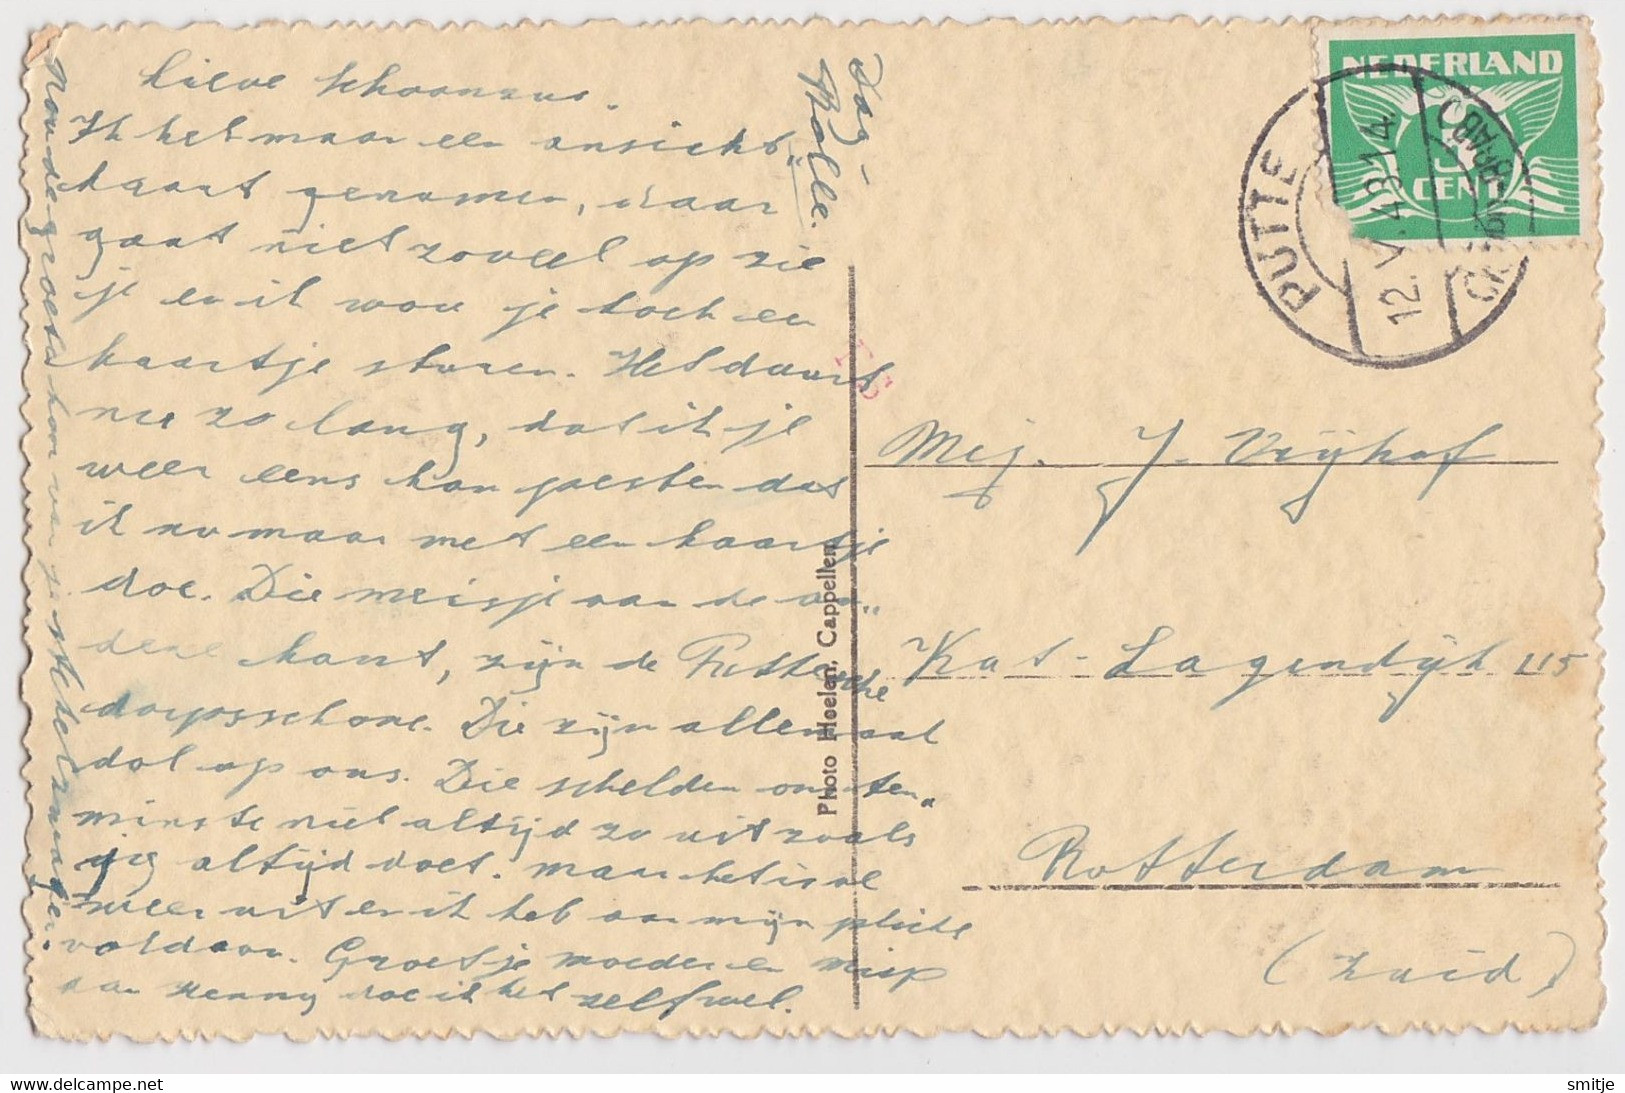 Lieve Schoonzus.
Ik heb maar een ansicht„
kaart genomen, daar
gaat niet zoveel op zie
je en ik wou je toch een
kaartje sturen. Het duurt
nu zo lang, dat ik je
weer eens kan pesten dat
ik nu maar met een kaartje
doe. Die meisje aan de an„
dere kant, zijn de Puttesche
dorpsschone. Die zijn allemaal
dol op ons. Die schelden ons ten„
minste niet altijd zo uit zoals
jij altijd doet. maar het is al
weer uit en ik heb aan mijn plicht
voldaan. Groetje moeder en
aan Henny doe ik het zelf wel.
Nou de groeten hoor van je Zwager.
Dag
Rolle.
Photo Hoelen, Cappellen
NEDERLAND
5
CENT
PUTTE
12.V.43 14
Mej. J. Vrijhof
Kat-Lagendijk 115
Rotterdam
(Zuid)
delcampe.net
smitje